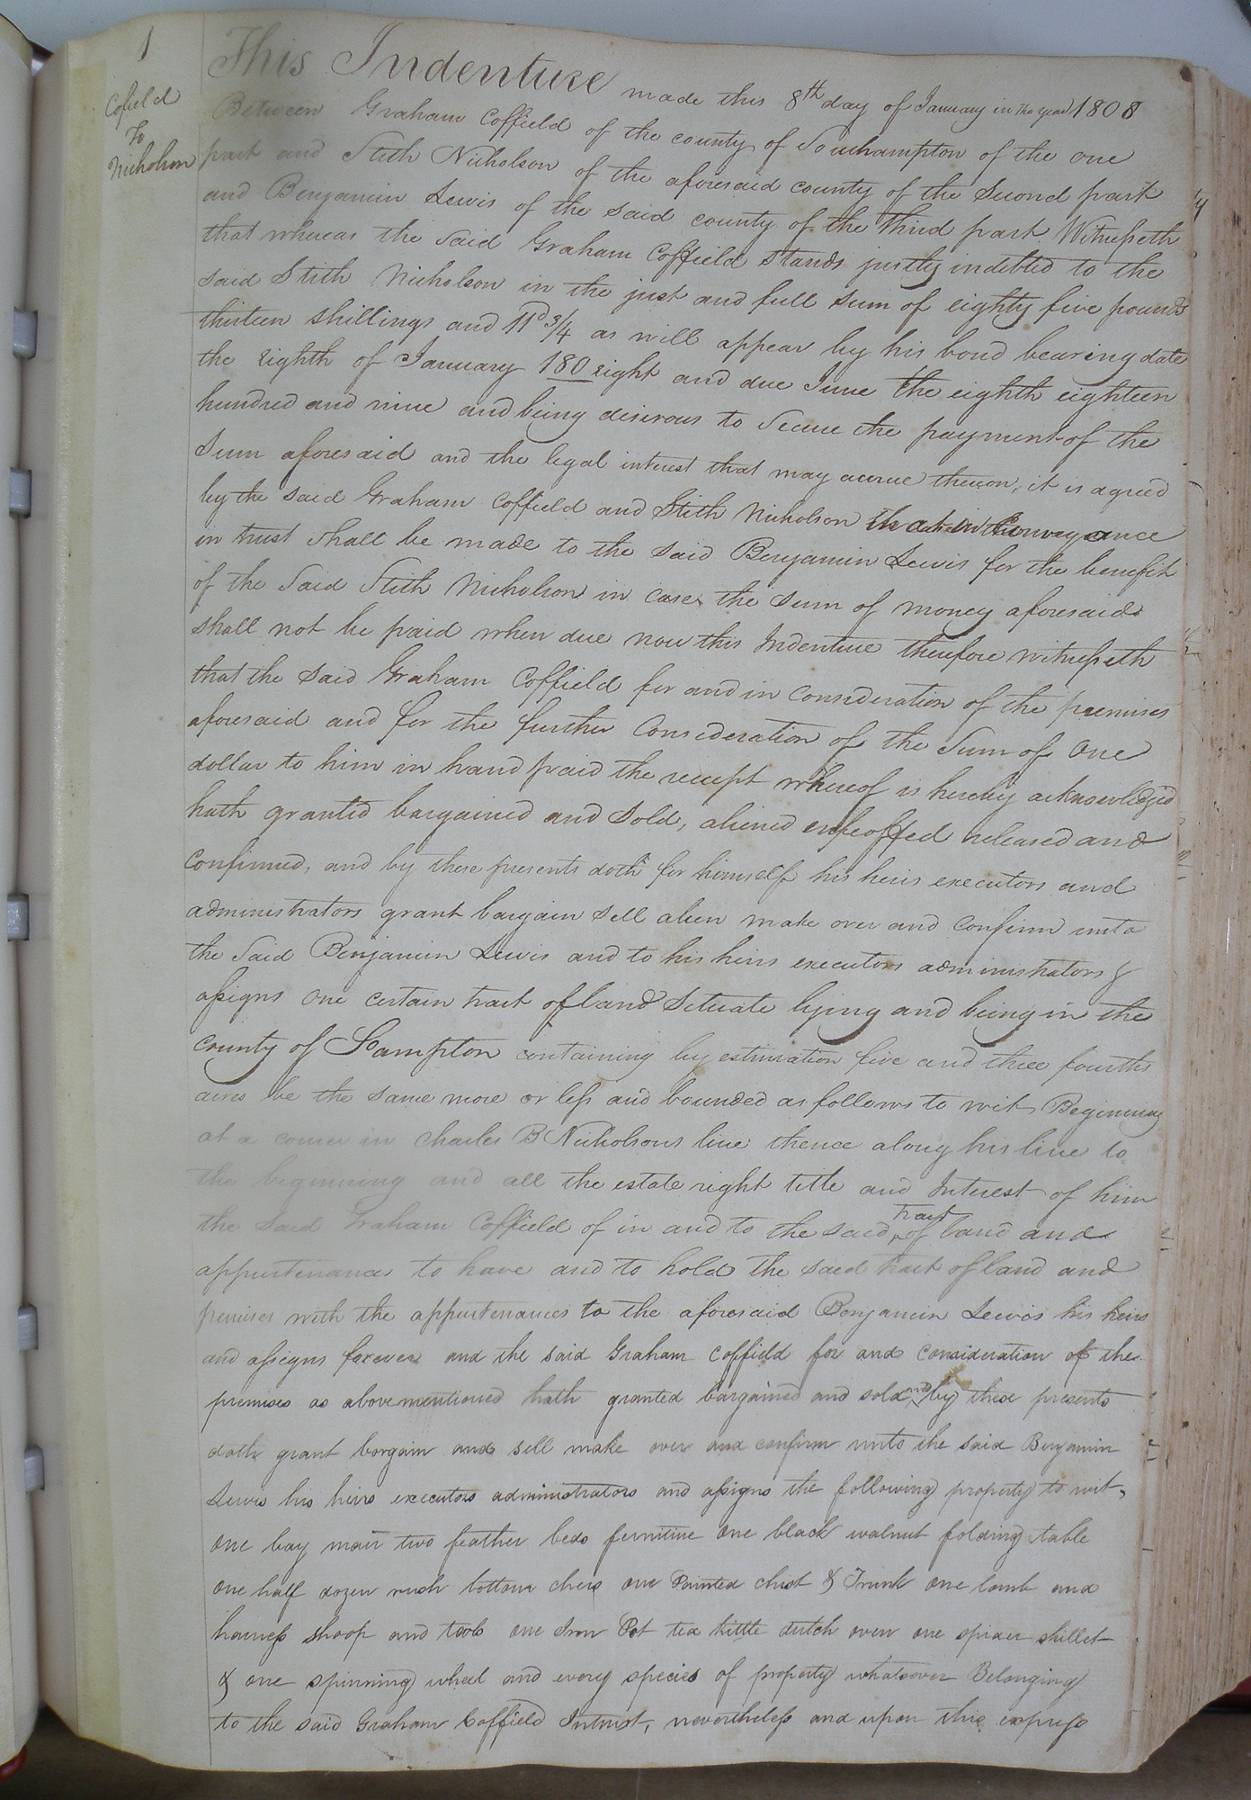 1
Cofield
To
Nicholson
This Indenture made this 8th day of January in the year 1808
Between Graham Coffield of the county of Southampton of the one
part and Stith Nicholson of the aforesaid county of the Second part
and Benjamin Lewis of the said county of the third part Witnesseth
that whereas the Said Graham Coffield Stands justly indebted to the
said Stith Nicholson in the just and full Sum of eighty five pounds
thirteen shillings and 11D 3/4 as will appear by his bond bearing date
the Eighth of January 180 eight and due June the eighth eighteen
hundred and nine and being disirous to Secure the payment of the
Sum aforesaid and the legal interest that may accrue thereon, it is agreed
by the said Graham Coffield and Stith Nicholson that Conveyance
in trust Shall be made to the Said Benjamin Lewis for the benefit
of the Said Stith Nicholson in case the Sum of money aforesaid
Shall not be paid when due now this Indenture therefore witnesseth
that the Said Graham Coffield for and in consideration of the premises
aforesaid and for the further Consideration of the Sum of One
dollar to him in hand paid the receipt whereof is hereby acknowledged
hath granted bargained and Sold, aliened enfeoffed released and
Confirmed, and by these presents doth for himself his heirs executors and
administrators grant bargain Sell alien make over and Confirm unto
the Said Benjamin Lewis and to his heirs executors administrators &
assigns One certain tract of land Situate lying and being in the
County of S'ampton containing by estimation five and three fourths
acres be the Same more or less and bounded as follows to wit, Beginning
at a corner in Charles B Nicholsons line thence along his line to
the beginning and all the estate right title and Interest of him
the Said Graham Coffield of in and to the said tract of land and
appurtenances to have and to hold the said tract of land and
premises with the appurtenances to the aforesaid Benjamin Lewis his heirs
and assigns forever and the said Graham Coffield for and Consideration of the
premises as above mentioned hath granted bargained and sold and by these presents
doth grant bargain and sell make over and confirm unto the said Benjamin
Lewis his heirs executors administrators and assigns the following property to wit,
one bay mair two feather beds furniture one black walnut folding table
one half dozen rush bottom chers one Painted chest & Trunk one lomb and
harness shoop and tools one Iron Pot tea kettle dutch oven one spider skillet
& one spinning wheel and every species of property whatsover Belonging
to the said Graham Coffield Intrust, nevertheless and upon this express